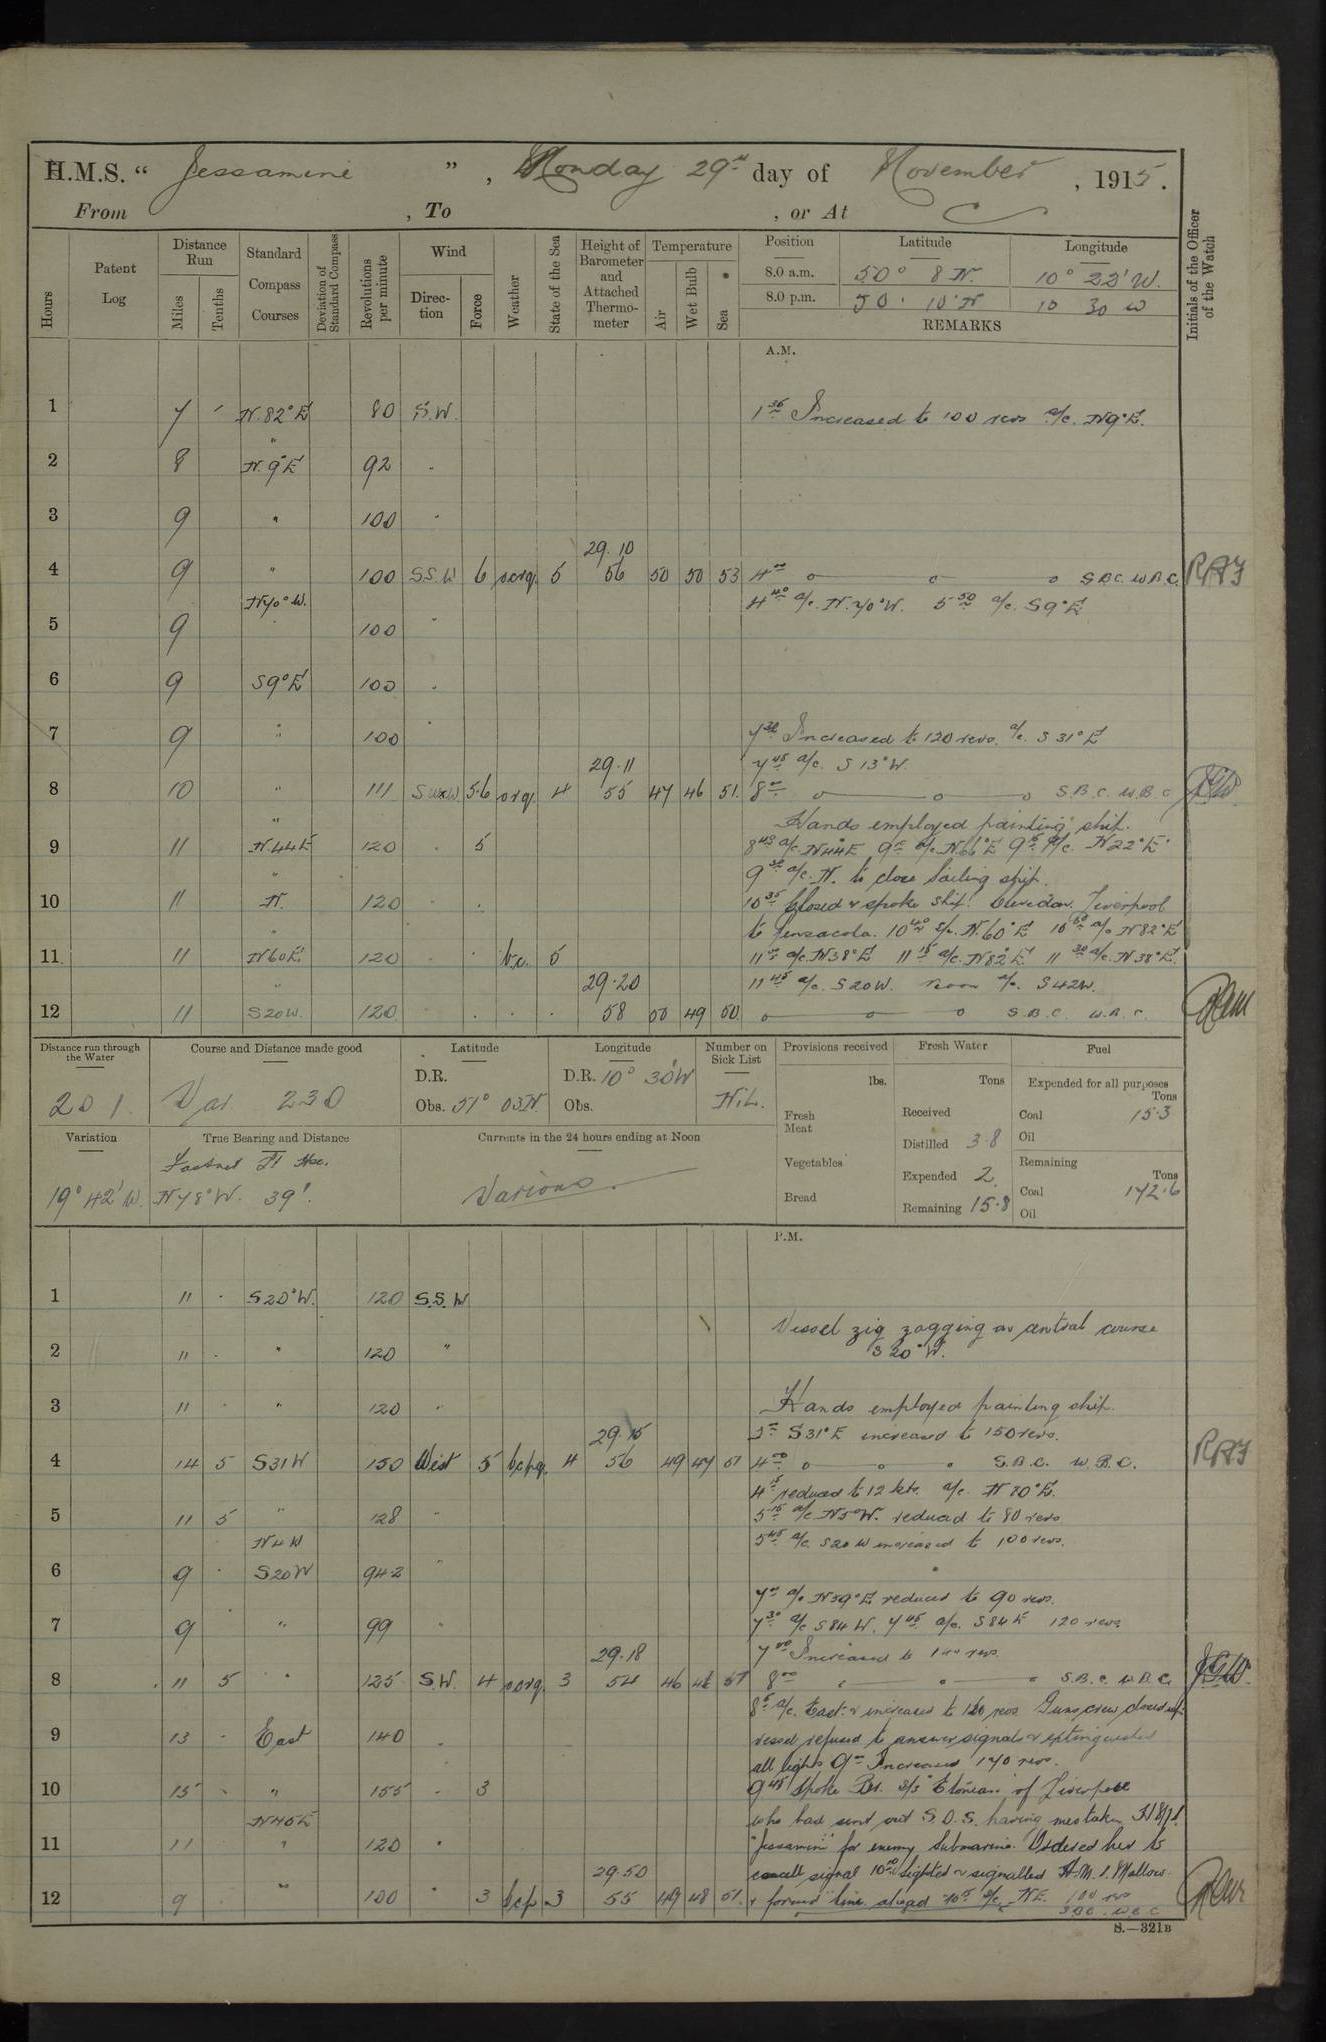 H.M.S. “ Jessamine ” , Monday 29th day of November , 1915.
From , To , or At
Hours
Patent Log
Distance Run
Miles
Tenths
Standard Compass Courses
Deviation of Standard Compass
Revolutions per minute
Wind
Direction
Force
Weather
State of the Sea
Height of Barometer and Attached Thermometer
Temperature
Air
Wet Bulb
Sea
Position Latitude Longitude
8.0 a.m. 50° 8 N. 10° 22' W.
8.0 p.m. 50 10 N 10 30 W
REMARKS
Initials of the Officer of the Watch
A.M.
1 7 N.82°E 80 S.W. 1 35 Increased to 100 revs a/c. N9°E.
2 8 N.9°E 92
3 9 " 100
29.10
4 9 " 100 S.S.W 6 5 56 50 50 53 4 00 S.B.C. W.B.C.
N70°W. 4 40 a/c. N.70°W. 5 50 a/c. S9°E
5 9 100 "
6 9 S9°E 100
7 9 " 100 7 30 Increased to 120 revs. a/c. S 31°E
29.11 7 45 a/c. S 13°W.
8 10 " 111 5.6 org. 4 55 47 46 51. 8 00 S.B.C. W.B.C
Hands employed painting ship.
9 11 N.44E 120 5 8 40 a/c N44E 9 a/c N66°E 9 a/c. N22°E
9 30 a/c. N. to close Sailing ship.
10 11 N. 120 10 35 Closed & spoke ship. Clevedon. Liverpool
to Pensacola. 10 40 a/c. N.60°E 10 50 a/c N82°E
11 11 N60E 120 b.c. 5 11 00 a/c. N38°E 11 15 a/c. N82E. 11 30 a/c. N38°E.
29.20 11 45 a/c. S20W. noon a/c. S42W.
12 11 S20W. 120 58 50 49 50 S.B.C. W.B.C.
Distance run through the Water
201
Course and Distance made good
Var 230
Latitude
D.R.
Obs. 51° 03N
Longitude
D.R. 10° 30W
Obs.
Number on Sick List
Nil.
Provisions received
lbs.
Fresh Meat
Vegetables
Bread
Fresh Water
Tons
Received
Distilled 3.8
Expended 2
Remaining 15.8
Fuel
Expended for all purposes
Tons
Coal 15.3
Oil
Remaining
Tons
Coal 172.6
Oil
Variation
19° 42' W.
True Bearing and Distance
Fastnet
N78°W. 39'.
Currents in the 24 hours ending at Noon
Various.
P.M.
1 11 S20°W. 120 S.S.W
Vessel zig zagging on central course
2 11 " 120 " S 20°W.
3 11 " 120 " Hands employed painting ship.
29.15 S31°E increased to 150 revs.
4 14 5 S31W 150 West 5 4 56 49 47 51 4 00 S.B.C. W.B.C. RAJ
4 15 reduced to 12 kts. a/c. N 80°E.
5 11 5 " 128 " 5 15 a/c N5°W. reduced to 80 revs
N4W 5 45 a/c. S20W increased to 100 revs.
6 9 S20W 94.2 "
7 00 a/c N59°E reduced to 90 revs.
7 9 " 99 " 7 30 a/c S84W. 7 45 a/c. S84E 120 revs
29.18 Increased to revs.
8 11 5 " 125 S.W. 4 3 54 46 8 00 S.B.C. W.B.C.
8 5 a/c. East & increased to revs Guns crew closed up
9 13 East 140 vessel refused to answer signals & extinguished
all lights 9 00 Increased 170 revs.
10 15 " 155 3 9 45 Spoke Br. S/S "Etonian" of Liverpool
N45E who had sent out S.O.S. having mistaken H.M.S.
11 11 " 120 "Jessamine" for enemy Submarine. Ordered her to
29.50 cancel signal 10 sighted & signalled H.M.S. Mallow
12 9 " 100 " 3 bcp 3 55 49 48 51. & formed line ahead a/c. NE. 100 revs
S.B.C. W.B.C
S.—321B